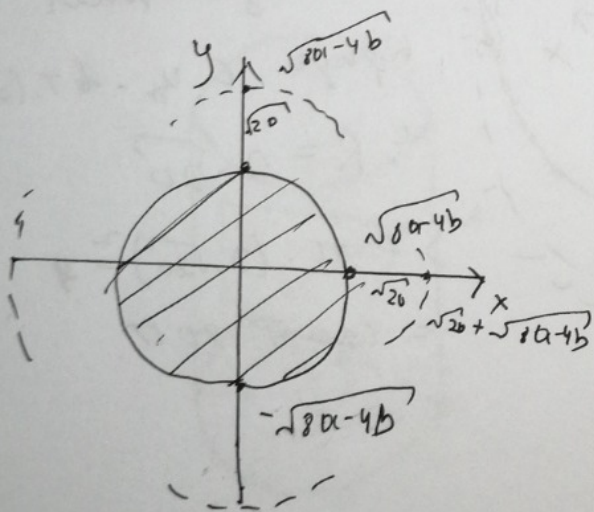 y
√8a-4b
√20
√8a-4b
√20
x
√20 + √8a-4b
-√8a-4b